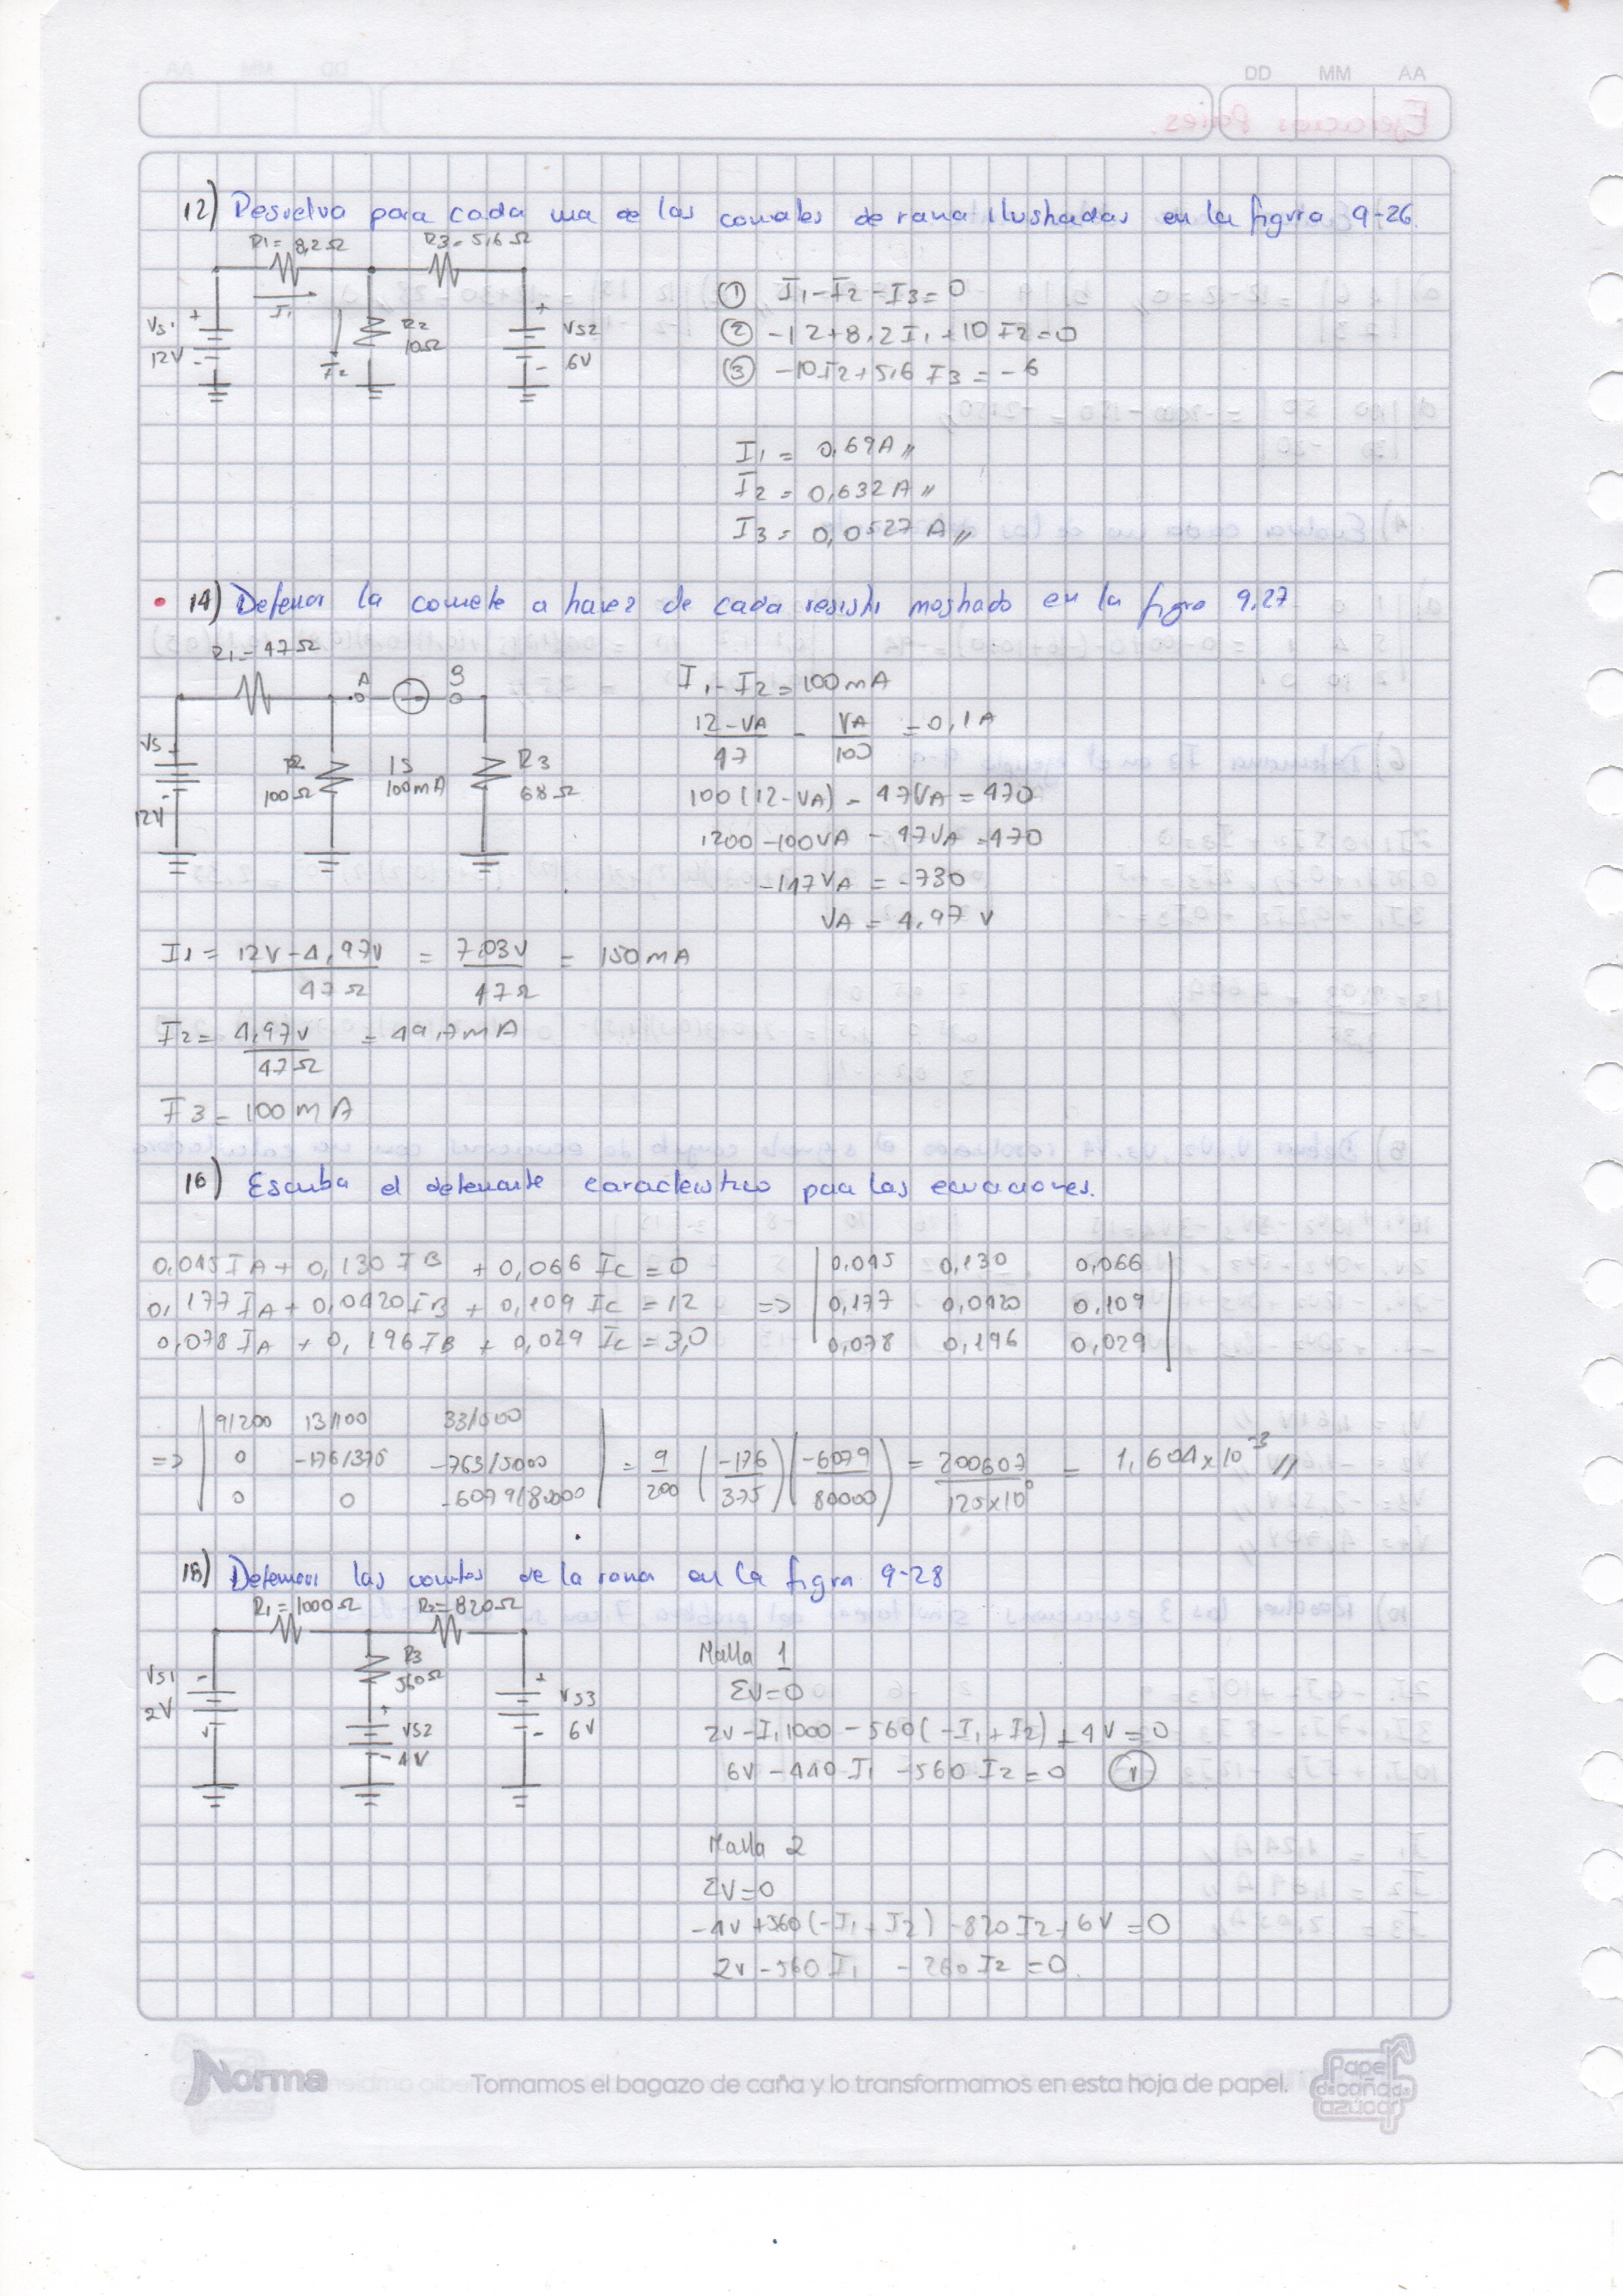 DD MM AA
12) Resuelva para cada una de las corrientes de rama ilustradas en la figura 9-26.
R1= 8,2Ω R3= 5,6Ω
I1
VS1 + 12V -
R2 10Ω
I2
+ VS2 6V -
① I1-I2-I3=0
② -12+8,2I1+10I2=0
③ -10I2+5,6 I3 = -6
I1 = 0,69A //
I2 = 0,632A //
I3 = 0,0527 A //
14) Determinar la corriente a traves de cada resistor mostrado en la figura 9.27
R1=47Ω A B
VS + - 12V
R2 100Ω
IS 100mA
R3 68Ω
I1-I2=100mA
12-VA/47 - VA/100 = 0,1A
100(12-VA) - 47VA = 470
1200-100VA - 47VA =470
-147VA = -730
VA = 4,97 V
I1 = 12V-4,97V/47Ω = 7.03V/47Ω = 150mA
I2= 4,97V/47Ω = 49,7mA
I3=100mA
16) Escriba el determinante caracteristico para las ecuaciones.
0,045IA+ 0,130 IB + 0,066 IC=0
0,177 IA+ 0,0420IB + 0,109 IC = 12
0,078 IA + 0,196IB + 0,029 IC=3,0
=>
0,045 0,130 0,066
0,177 0,0420 0,109
0,078 0,196 0,029
=>
9/200 13/100 33/500
0 -176/375 -763/5000
0 0 -6079/80000
= 9/200 (-176/375)(-6079/80000) = 200607/125x10⁶ = 1,604x10⁻³ //
18) Determinar las corrientes de la rama en la figura 9-28
R1=1000Ω R2=820Ω
VS1 - 2V
R3 560Ω
+ VS2 - 4V
+ VS3 6V -
Malla 1
ΣV=0
2V-I1 1000 - 560(-I1+I2) + 4V=0
6V -440 I1 -560 I2=0 ①
Malla 2
ΣV=0
-4V+560(-I1+I2) -820I2+6V=0
2V-560I1 - 260I2=0.
Norma
Tomamos el bagazo de caña y lo transformamos en esta hoja de papel.
Papel de caña de azúcar